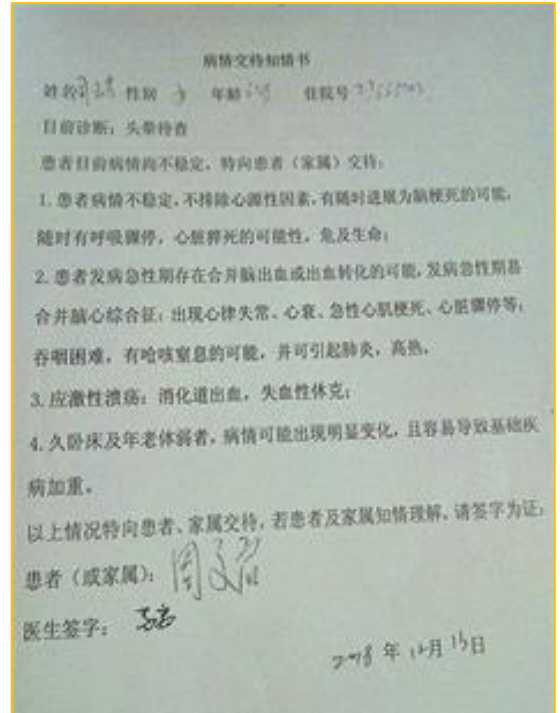 病情交待知情书
姓名 性别 女 年龄 住院号
目前诊断：头晕待查
患者目前病情尚不稳定，特向患者（家属）交待：
1. 患者病情不稳定，不排除心源性因素，有随时进展为脑梗死的可能，
随时有呼吸骤停，心脏猝死的可能性，危及生命；
2. 患者发病急性期存在合并脑出血或出血转化的可能，发病急性期易
合并脑心综合征：出现心律失常、心衰、急性心肌梗死、心脏骤停等；
吞咽困难，有呛咳窒息的可能，并可引起肺炎，高热。
3. 应激性溃疡：消化道出血，失血性休克；
4. 久卧床及年老体弱者，病情可能出现明显变化，且容易导致基础疾
病加重。
以上情况特向患者、家属交待，若患者及家属知情理解，请签字为证：
患者（或家属）：周
医生签字：
2018 年 12月 13日